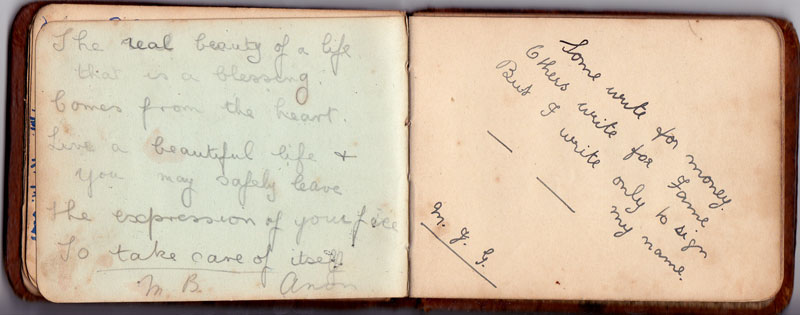 The real beauty of a life
that is a blessing
Comes from the heart.
Live a beautiful life +
you may safely leave
the expression of your face
To take care of itself.
M. B. Anon
Some write for money.
Others write for Fame
But I write only to sign
my name.
M. J. G.